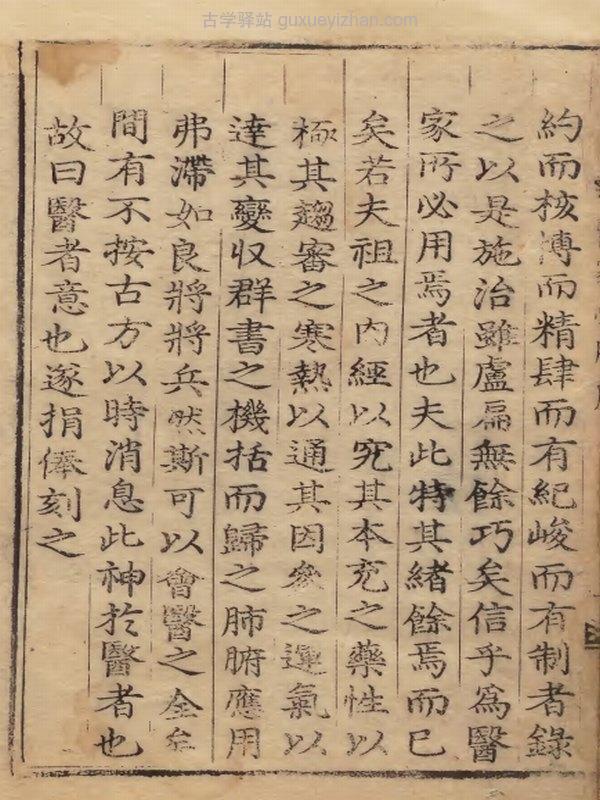 古学驿站 guxueyizhan.com
約而核博而精肆而有紀峻而有制者錄
之以是施治雖盧扁無餘巧矣信乎為醫
家所必用焉者也夫此特其緒餘焉而已
矣若夫祖之内經以究其本充之藥性以
極其趨審之寒熱以通其因參之運氣以
達其變収群書之機括而歸之肺腑應用
弗滯如良將將兵然斯可以會醫之全矣
間有不按古方以時消息此神於醫者也
故曰醫者意也遂捐俸刻之